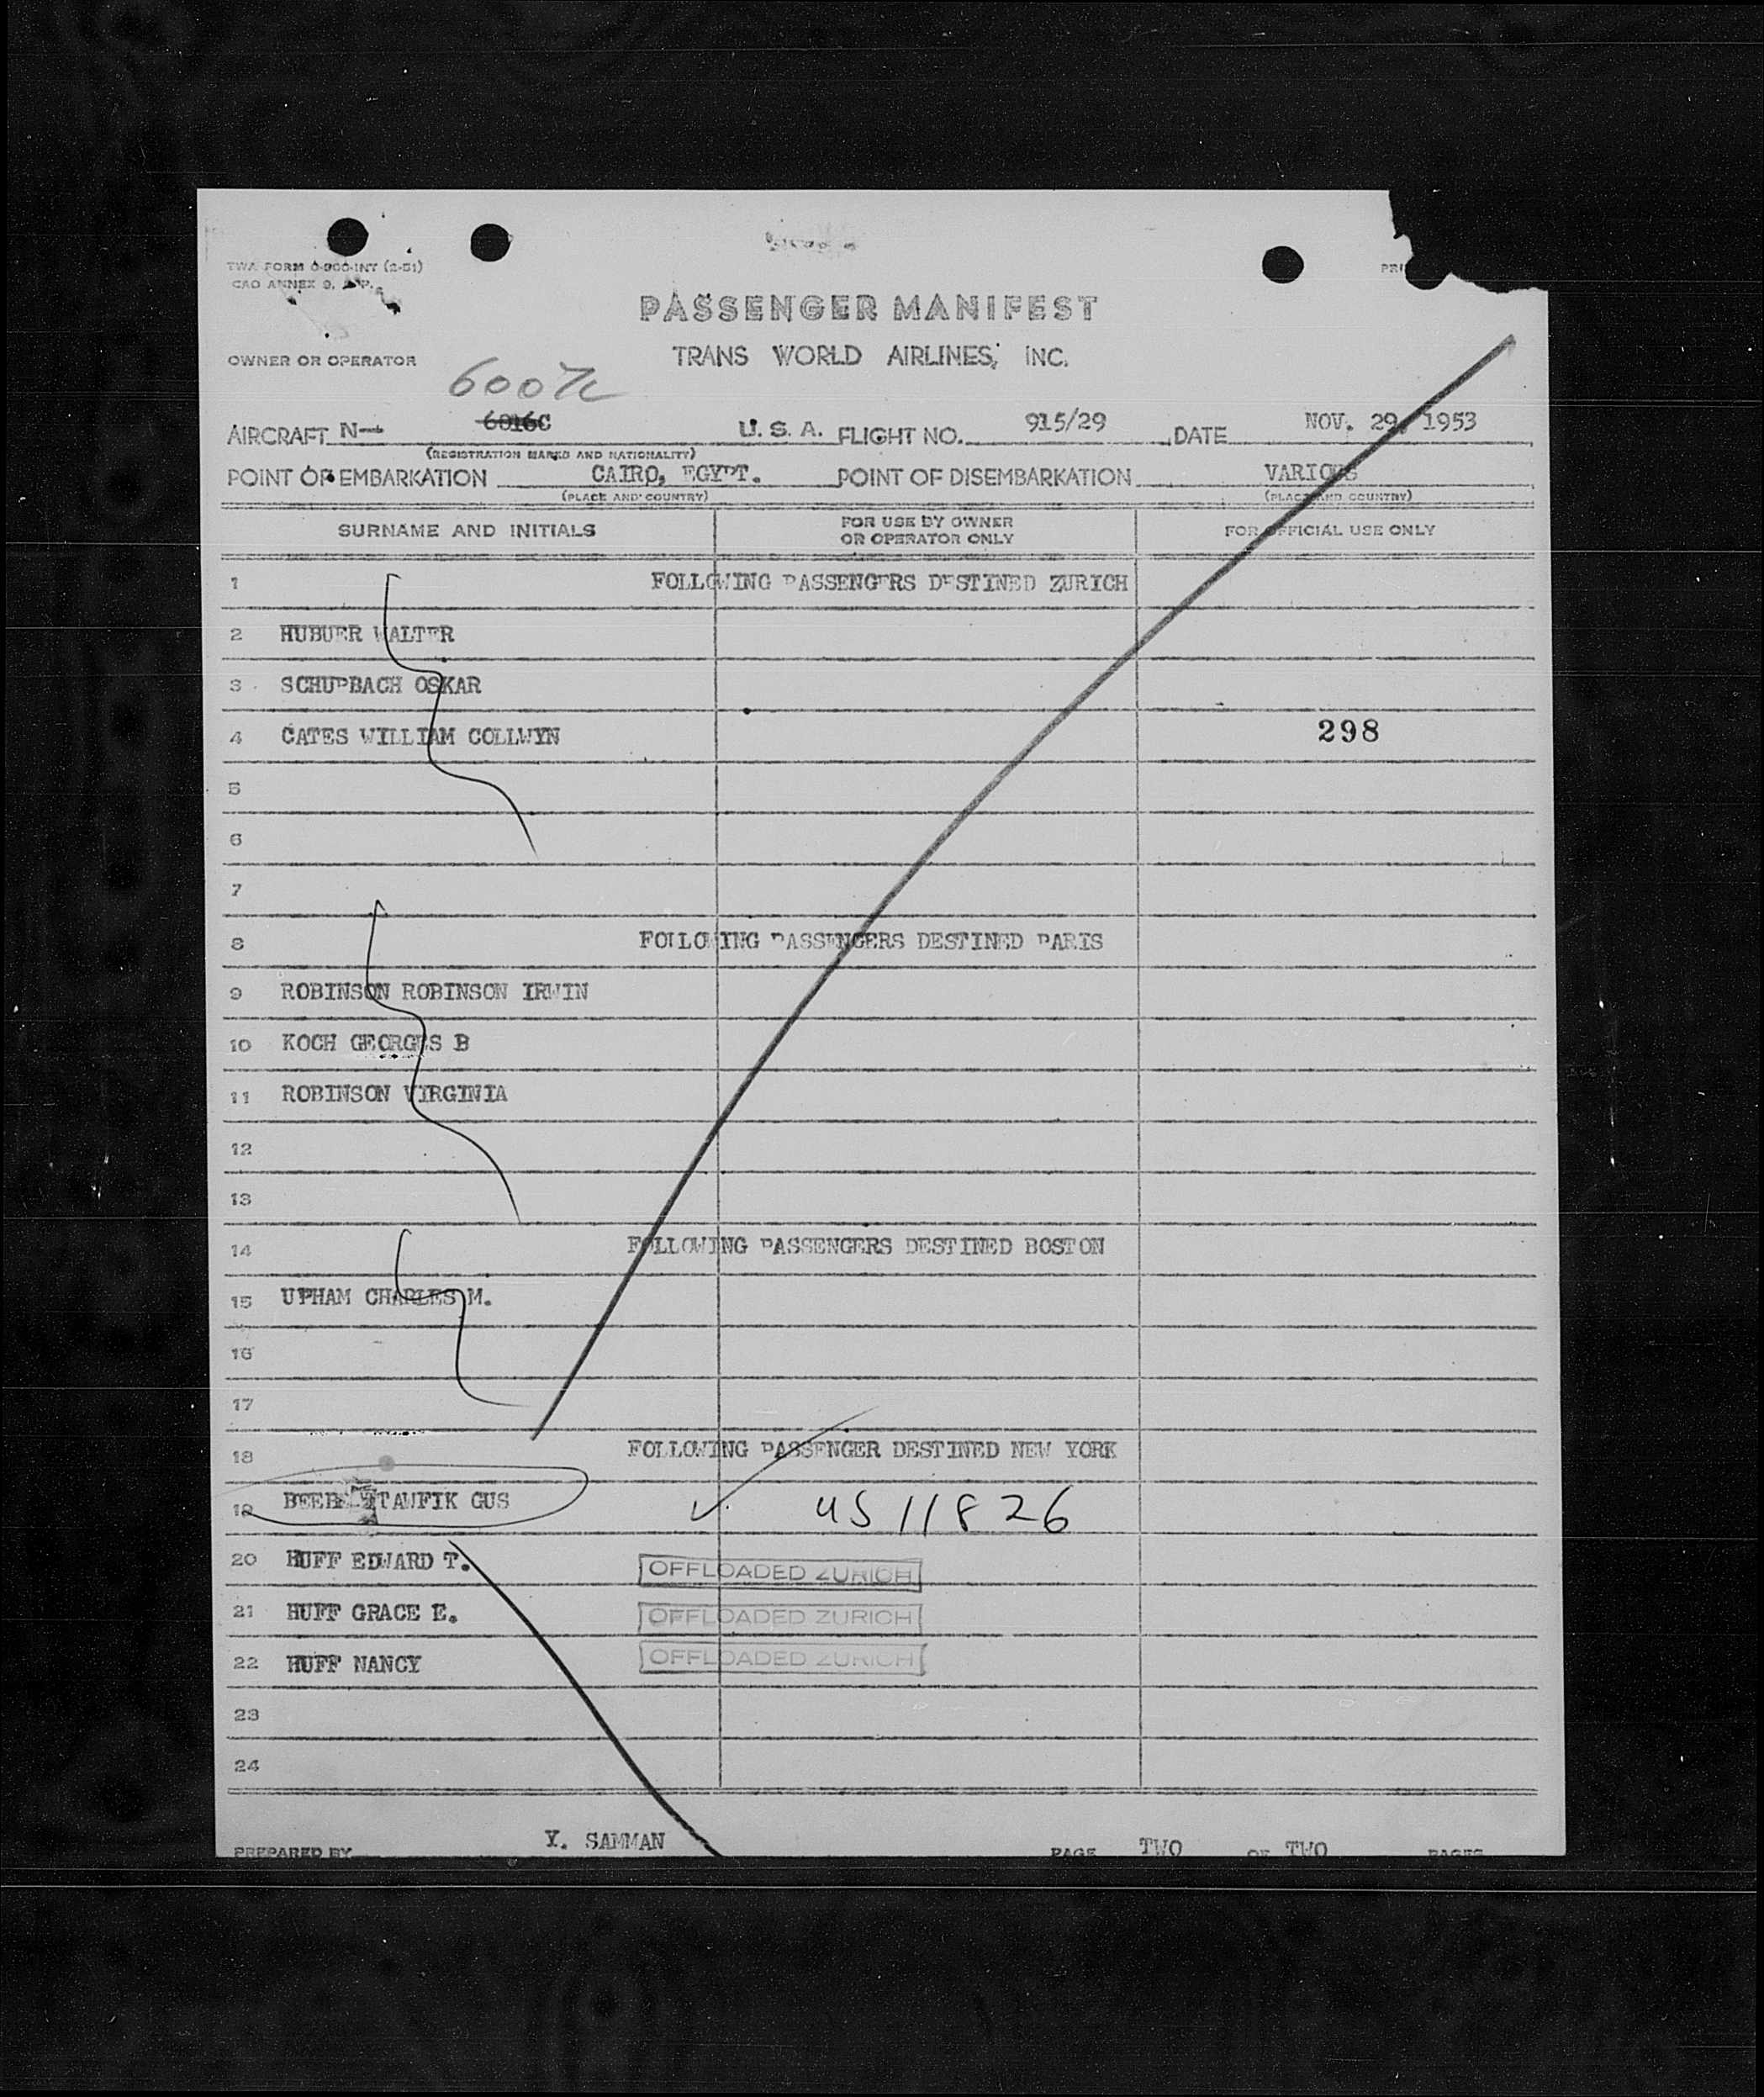 TWA FORM O-900-INT (2-51)
CAO ANNEX 9,
PRI
PASSENGER MANIFEST
OWNER OR OPERATOR TRANS WORLD AIRLINES, INC.
AIRCRAFT N— 6016C U. S. A. FLIGHT NO. 915/29 DATE NOV. 29, 1953
(REGISTRATION MARKS AND NATIONALITY)
POINT OF EMBARKATION CAIRO, EGYPT. POINT OF DISEMBARKATION VARIOUS
(PLACE AND COUNTRY) (PLACE AND COUNTRY)
SURNAME AND INITIALS FOR USE BY OWNER OR OPERATOR ONLY FOR OFFICIAL USE ONLY
1 FOLLOWING PASSENGERS DESTINED ZURICH
2 HUBUER WALTER
3 SCHUPBACH OSKAR
4 CATES WILLIAM COLLWYN 298
5
6
7
8 FOLLOWING PASSENGERS DESTINED PARIS
9 ROBINSON ROBINSON IRWIN
10 KOCH GEORGES B
11 ROBINSON VIRGINIA
12
13
14 FOLLOWING PASSENGERS DESTINED BOSTON
15 UPHAM CHARLES M.
16
17
18 FOLLOWING PASSENGER DESTINED NEW YORK
19 TAUFIK GUS US 11826
20 HUFF EDWARD T. OFFLOADED ZURICH
21 HUFF GRACE E. OFFLOADED ZURICH
22 HUFF NANCY OFFLOADED ZURICH
23
24
PREPARED BY Y. SAMMAN PAGE TWO OF TWO PAGES